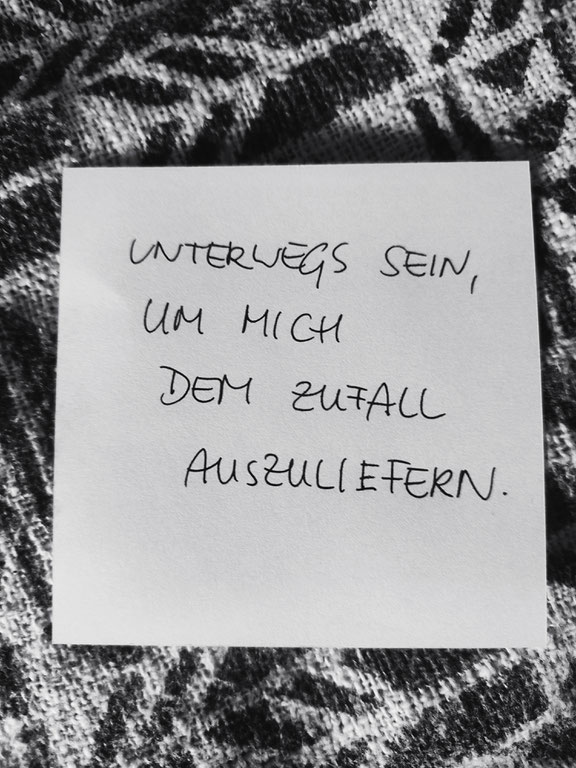 UNTERWEGS SEIN,
UM MICH
DEM ZUFALL
AUSZULIEFERN.